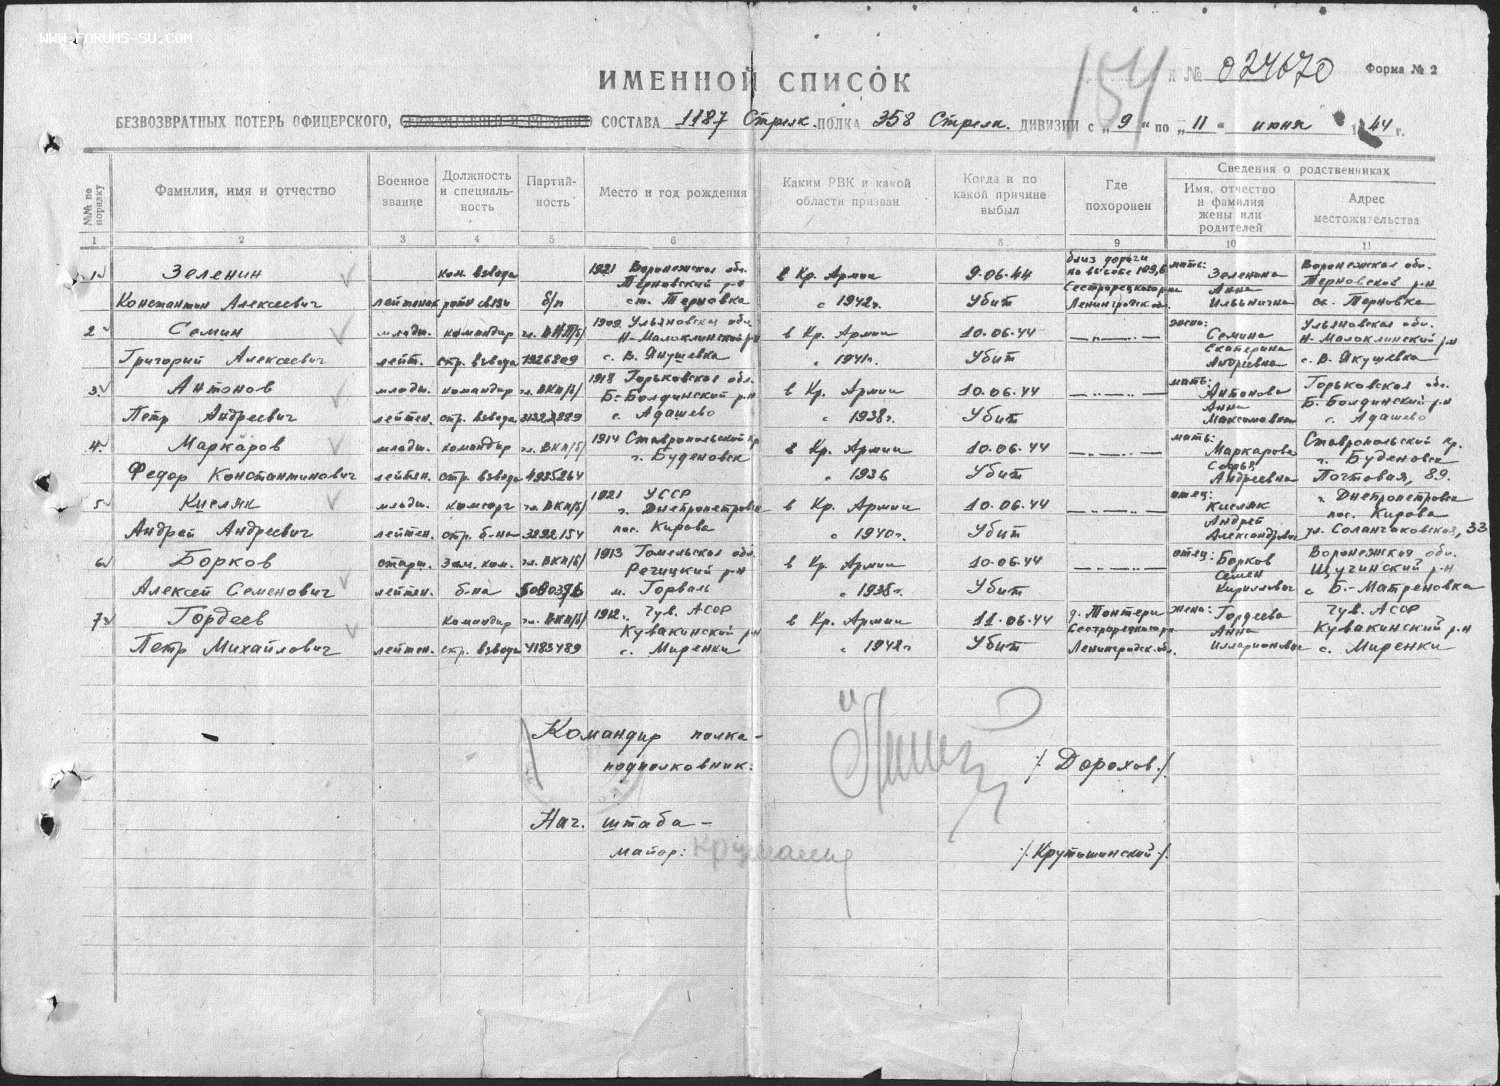 WWW.FORUMS-SU.COM
ИМЕННОЙ СПИСОК
154
№ 024670
Форма № 2
БЕЗВОЗВРАТНЫХ ПОТЕРЬ ОФИЦЕРСКОГО, СОСТАВА 1187 Стрелк. ПОЛКА 358 Стрелк. ДИВИЗИИ с „9“ по „11“ июня 1944 г.
№№ по порядку
Фамилия, имя и отчество
Военное звание
Должность и специальность
Партийность
Место и год рождения
Каким РВК и какой области призван
Когда и по какой причине выбыл
Где похоронен
Сведения о родственниках
Имя, отчество и фамилия жены или родителей
Адрес местожительства
1 2 3 4 5 6 7 8 9 10 11
1 Зеленин ком. взвода 1921 Воронежская обл. Терновский р-н в Кр. Армии 9.06.44 близ дороги на высоте 109,6 мать: Зеленина Воронежская обл. Терновский р-н
Константин Алексеевич лейтенант роты связи б/п ст. Терновка с 1942г. Убит Сестрорецкого р-на Ленинградск. обл. Анна Ильинична ст. Терновка
2 Семин младш. командир чл. ВКП/б/ 1909 Ульяновская обл. Н-Малоклинский р-н в Кр. Армии 10.06.44 —„—„— жена: Семина Ульяновская обл. Н-Малоклинский р-н
Григорий Алексеевич лейт. стр. взвода 1926809 с. В. Якушевка с 1941г. Убит Екатерина Андреевна с. В. Якушевка
3. Антонов младш. командир чл. ВКП/б/ 1918 Горьковская обл. Б-Болдинский р-н в Кр. Армии 10.06.44 —„—„— мать: Антонова Горьковская обл. Б-Болдинский р-н
Петр Андреевич лейтен. стр. взвода с. Адашево с 1938г. Убит Анна Максимовна с. Адашево
4. Маркаров младш. командир чл. ВКП/б/ 1914 Ставропольский кр. г. Буденовск в Кр. Армии 10.06.44 —„—„— мать: Маркарова Ставропольский кр. г. Буденовск
Федор Константинович лейтен. стр. взвода 4925264 с 1936 Убит Софья Андреевна Почтовая, 89.
5 Кисляк младш. комсорг чл. ВКП/б/ 1921 УССР г. Днепропетровск в Кр. Армии 10.06.44 —„—„— отец: Кисляк г. Днепропетровск пос. Кирова
Андрей Андреевич лейтен. стр. б-на 3292154 пос. Кирова с 1940г. Убит Андрей Александрович ул. Соланчаковская, 33
6 Борков старш. зам. ком. чл. ВКП/б/ 1913 Гомельская обл. Речицкий р-н в Кр. Армии 10.06.44 —„—„— отец: Борков Воронежская обл. Щучинский р-н
Алексей Семенович лейтен. б-на м. Горваль с 1938г. Убит Семен Кириллович с Б-Матреновка
7 Гордеев командир чл. ВКП/б/ 1912г. Чув. АССР Кувакинский р-н в Кр. Армии 11.06.44 д. Тонтери жена: Гордеева Чув. АССР Кувакинский р-н
Петр Михайлович лейтен. стр. взвода 4183489 с. Миренки с 1942г Убит Сестрорецкого р-н Ленинградск. обл. Анна Илларионовна с. Миренки
Командир полка –
подполковник: /. Дорохов ./
Нач. штаба –
майор: /. Крутошинский ./